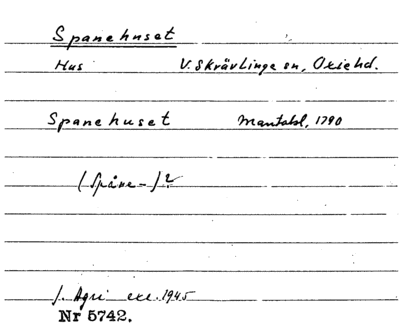 Spanehuset
Hus V. Skrävlinge sn, Oxiehd.
Spanehuset Mantal, 1790
(Spåne-)?
f. Agri exc. 1945
Nr 5742.